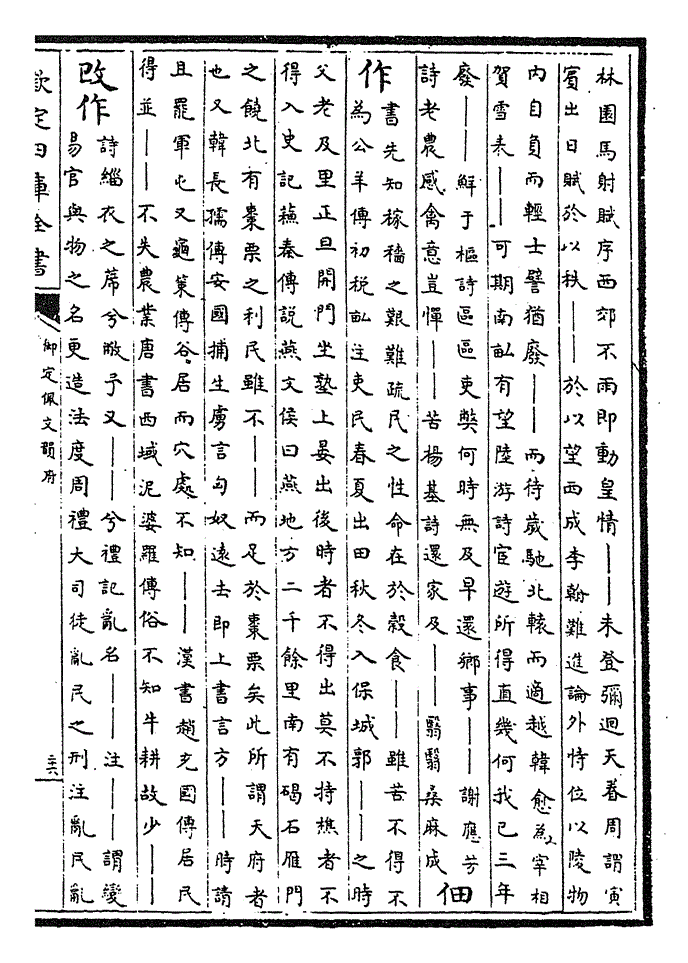 林園馬射賦序西郊不雨即動皇情——未登彌迴天眷周謂寅
賓出日賦於以秩——於以望西成李翰難進論外恃位以陵物
内自負而輕士譬猶廢——而待歲馳北轅而適越韓愈為宰相
賀雪表——可期南畝有望陸游詩宦遊所得直幾何我已三年
廢——鮮于樞詩區區吏弊何時無及早還鄉事——謝應芳
詩老農感禽意豈憚——苦楊基詩還家及——翳翳桑麻成
佃
作
書先知稼穡之艱難疏民之性命在於穀食——雖苦不得不
為公羊傳初稅畝注吏民春夏出田秋冬入保城郭——之時
父老及里正旦開門坐塾上晏出後時者不得出莫不持樵者不
得入史記蘇秦傳說燕文侯曰燕地方二千餘里南有碣石雁門
之饒北有棗栗之利民雖不——而足於棗栗矣此所謂天府者
也又韓長孺傳安國捕生虜言匈奴遠去即上書言方——時請
且罷軍屯又龜策傳谷居而穴處不知——漢書趙充國傳居民
得並——不失農業唐書西域泥婆羅傳俗不知牛耕故少——
改作
詩緇衣之蓆兮敝予又——兮禮記亂名——注——謂變
易官與物之名更造法度周禮大司徒亂民之刑注亂民亂
欽定四庫全書
御定佩文韻府